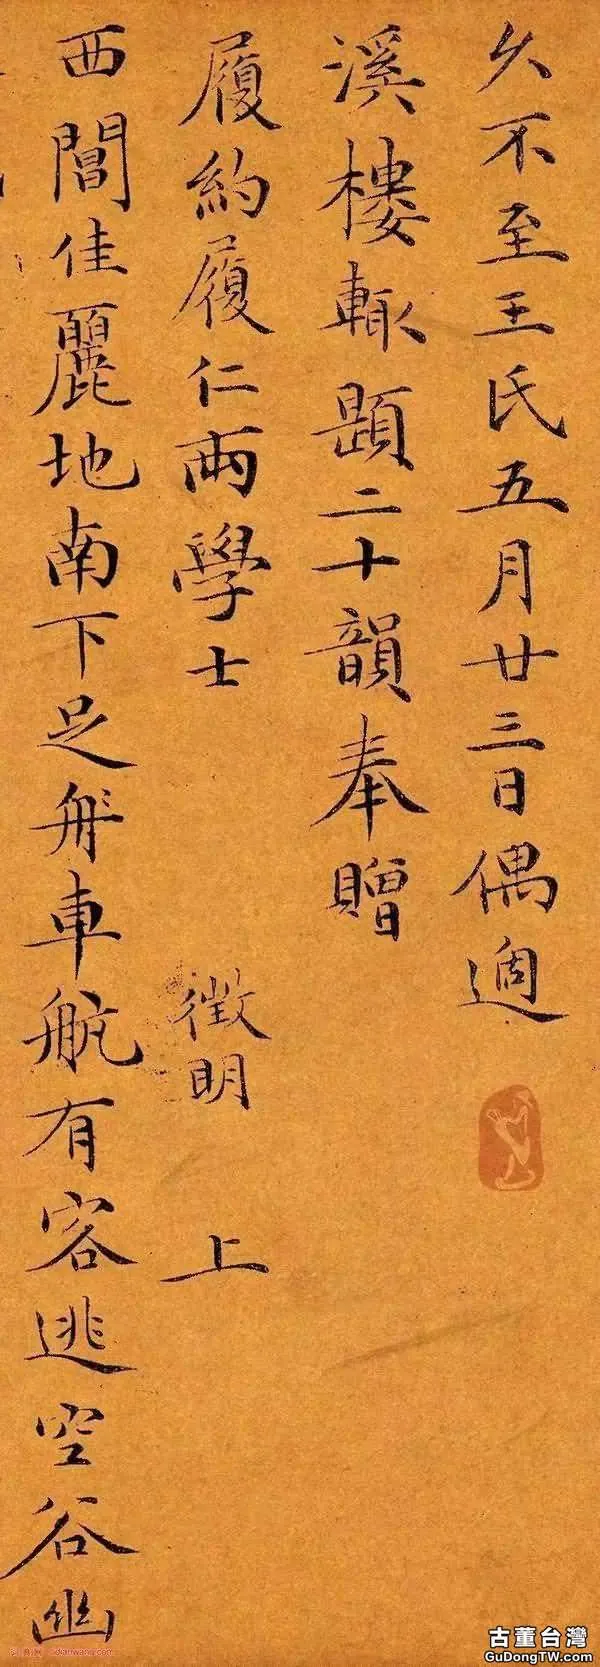 久不至王氏五月廿三日偶過
溪樓輙題二十韻奉贈
履約履仁兩學士 徵明 上
西閶佳麗地南下足舟車航有客逃空谷幽
古董台灣
GuDongTW.com